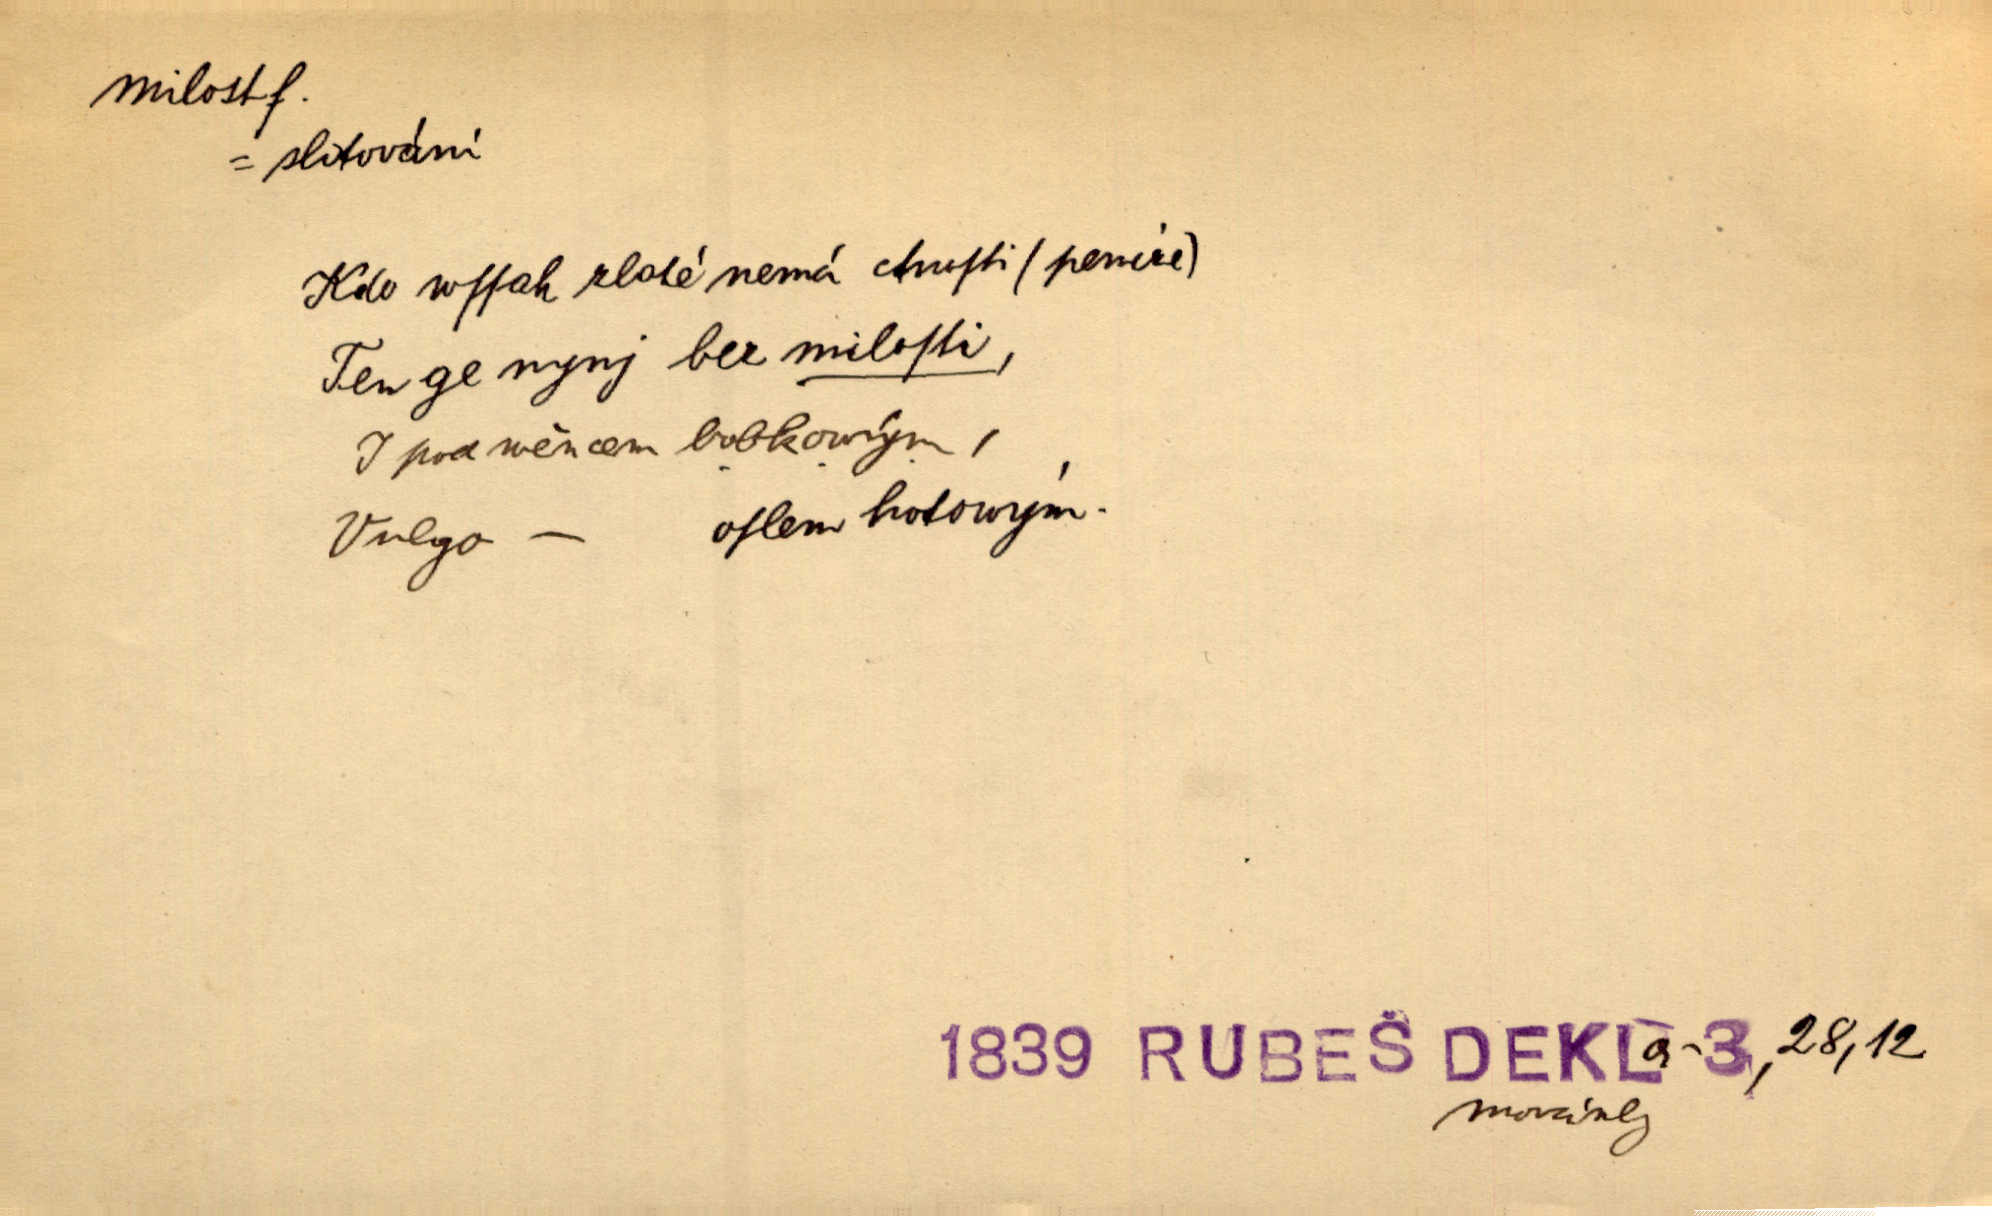 milost f.
= slitování
Kdo wſſak zlaté nemá ctnoſti (peníze)
Ten ge nynj bez miloſti,
I pod wěncem bobkowým,
Vulgo — oſlem hotowým.
1839 RUBEŠ DEKLa-3, 28, 12
movánky